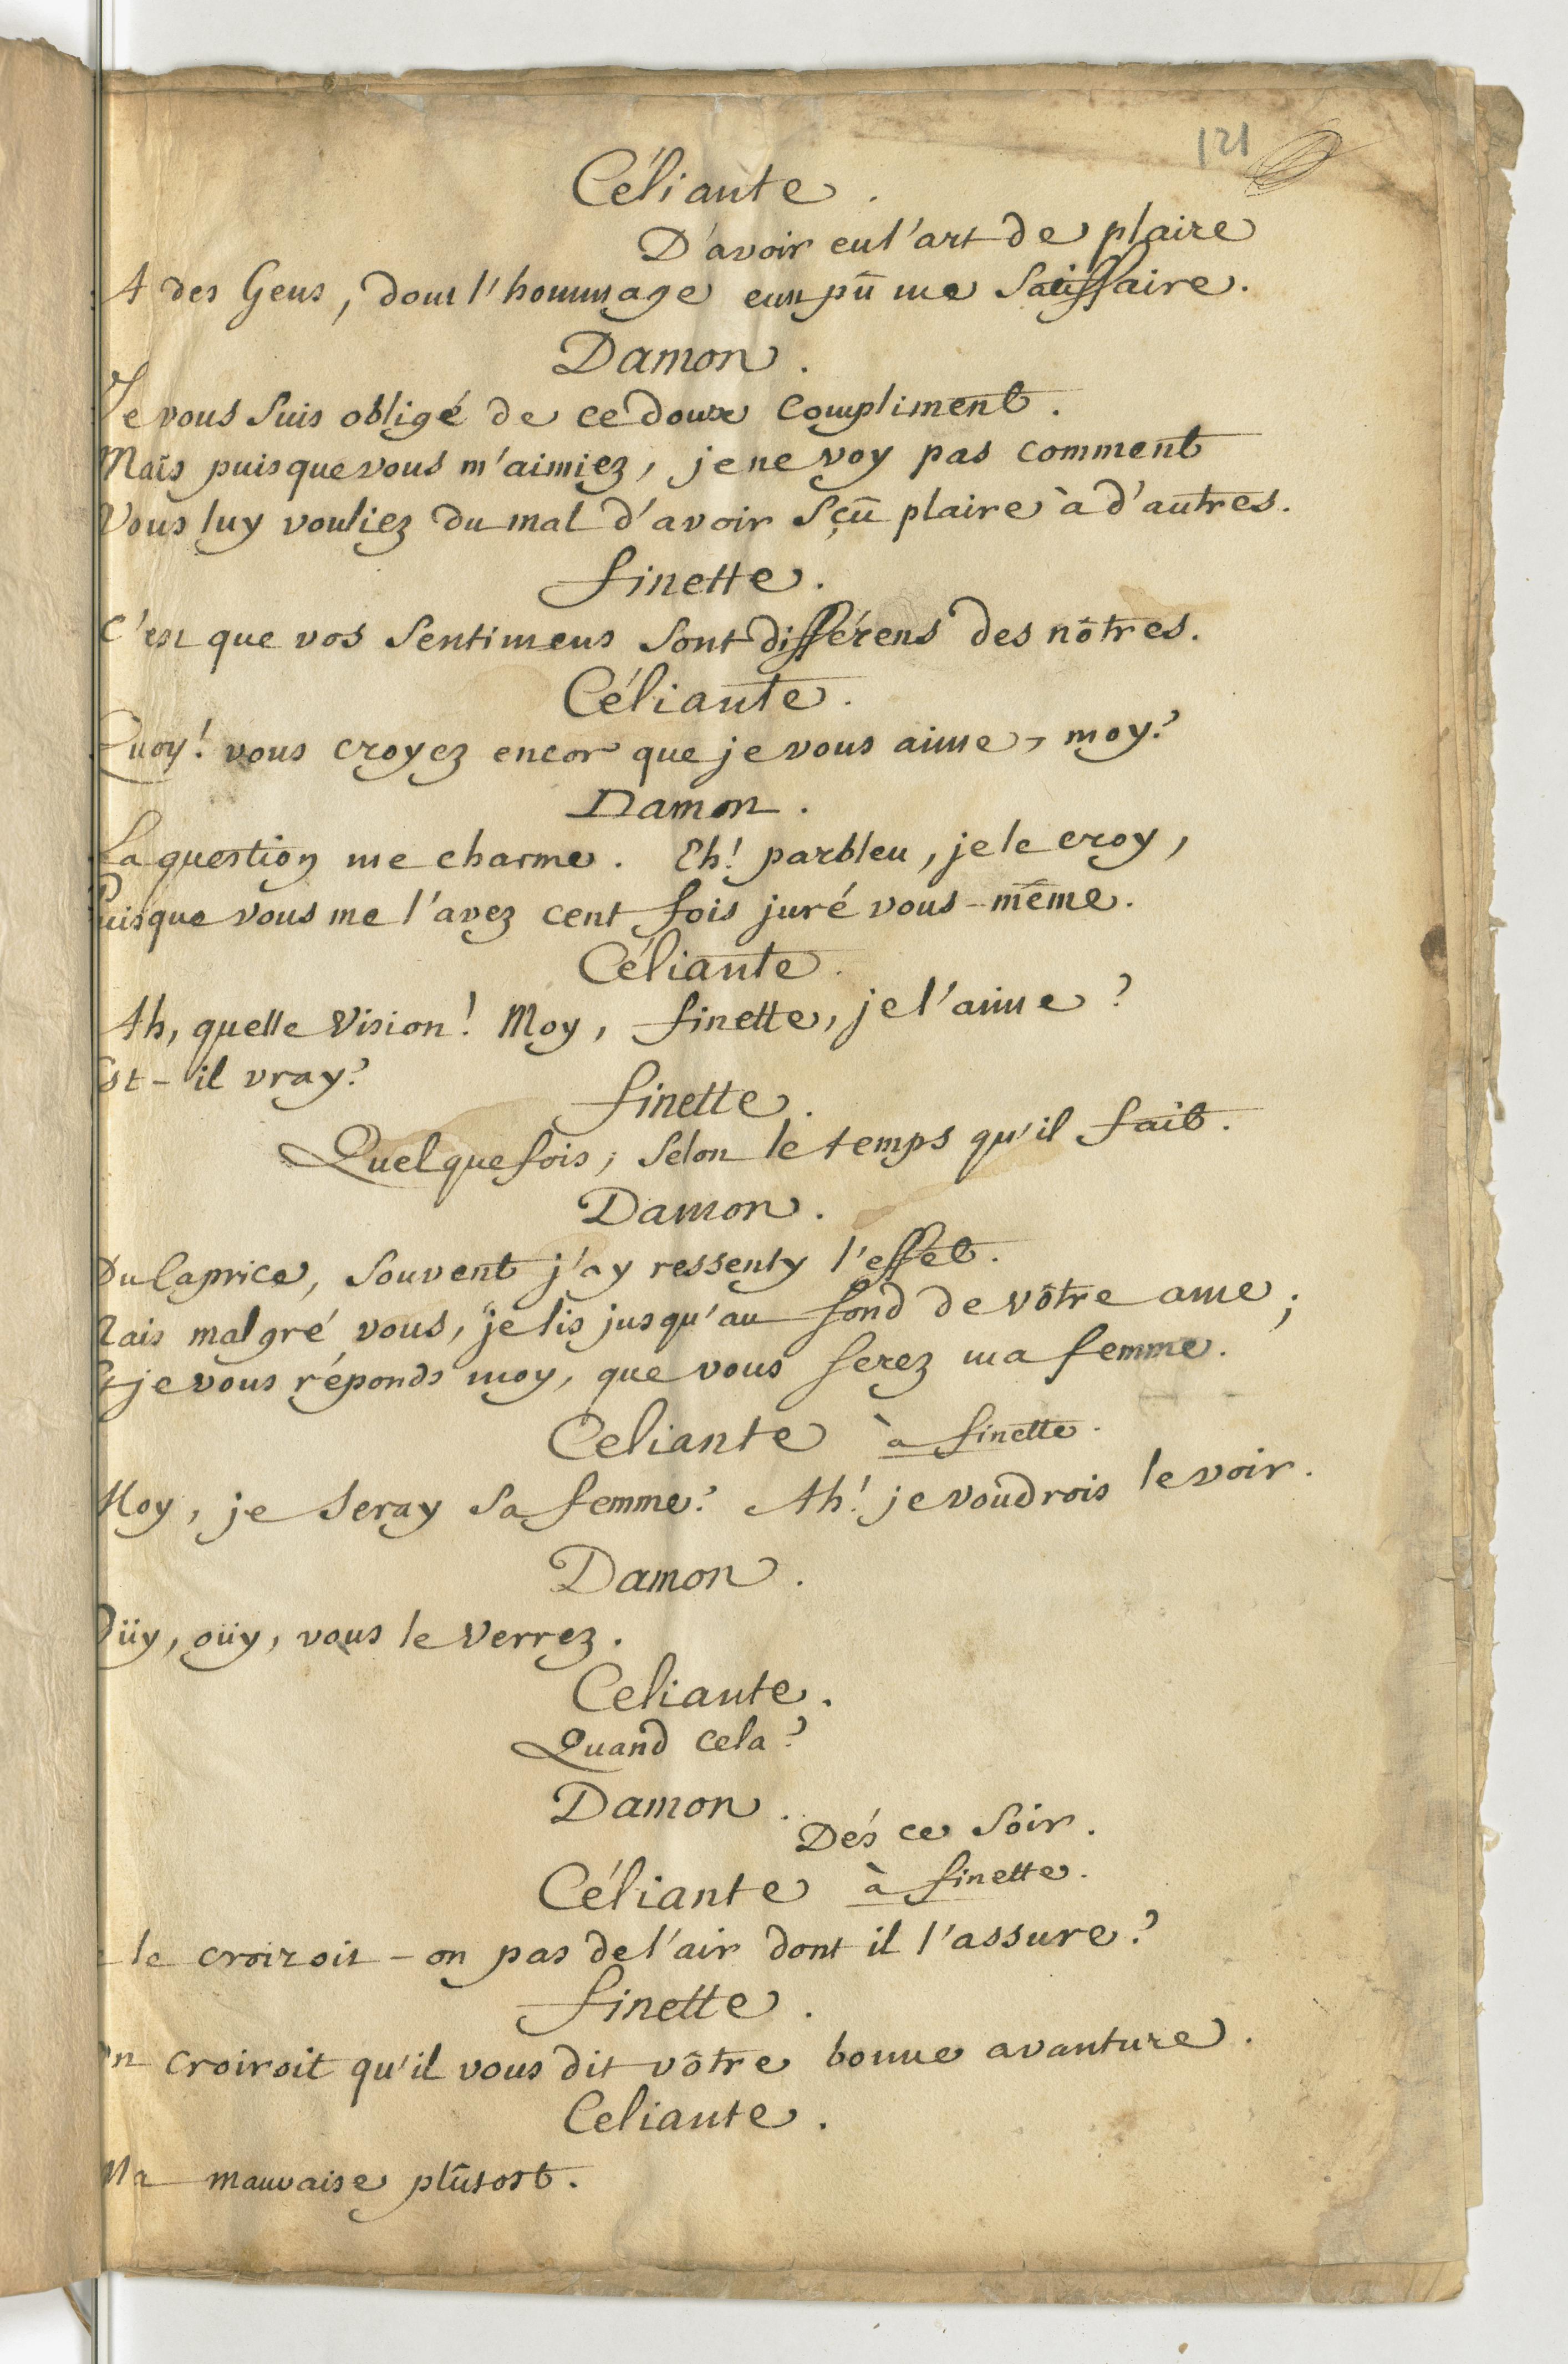 121
Céliante.
D'avoir eu l'art de plaire
A des Gens, dont l'hommage eust pû me Satisfaire.
Damon.
Je vous Suis obligé de ce doux Compliment.
Mais puisque vous m'aimiez, je ne voy pas comment
Vous luy vouliez du mal d'avoir Sçû plaire à d'autres.
finette.
C'est que vos Sentimens Sont différens des nôtres.
Céliante.
Quoy! vous croyez encor que je vous aime, moy?
Damon.
La question me charme. Eh! parbleu, je le croy,
Puisque vous me l'avez cent fois juré vous-même.
Céliante.
Ah, quelle Vision! Moy, finette, je l'aime?
Est-il vray?
finette.
Quelquefois, Selon le temps qu'il fait.
Damon.
Du Caprice, Souvent j'ay ressenty l'effet.
Mais malgré vous, je lis jusqu'au fond de vôtre ame;
Et je vous réponds moy, que vous Serez ma femme.
Celiante à finette.
Moy, je Seray Sa femme? Ah! je voudrois le voir.
Damon.
Oüy, oüy, vous le Verrez.
Celiante.
Quand cela?
Damon.
Dés ce Soir.
Céliante à finette.
le croiroit-on pas de l'air dont il l'assure?
finette.
On croiroit qu'il vous dit vôtre bonne avanture.
Celiante.
Ma mauvaise plûtost.